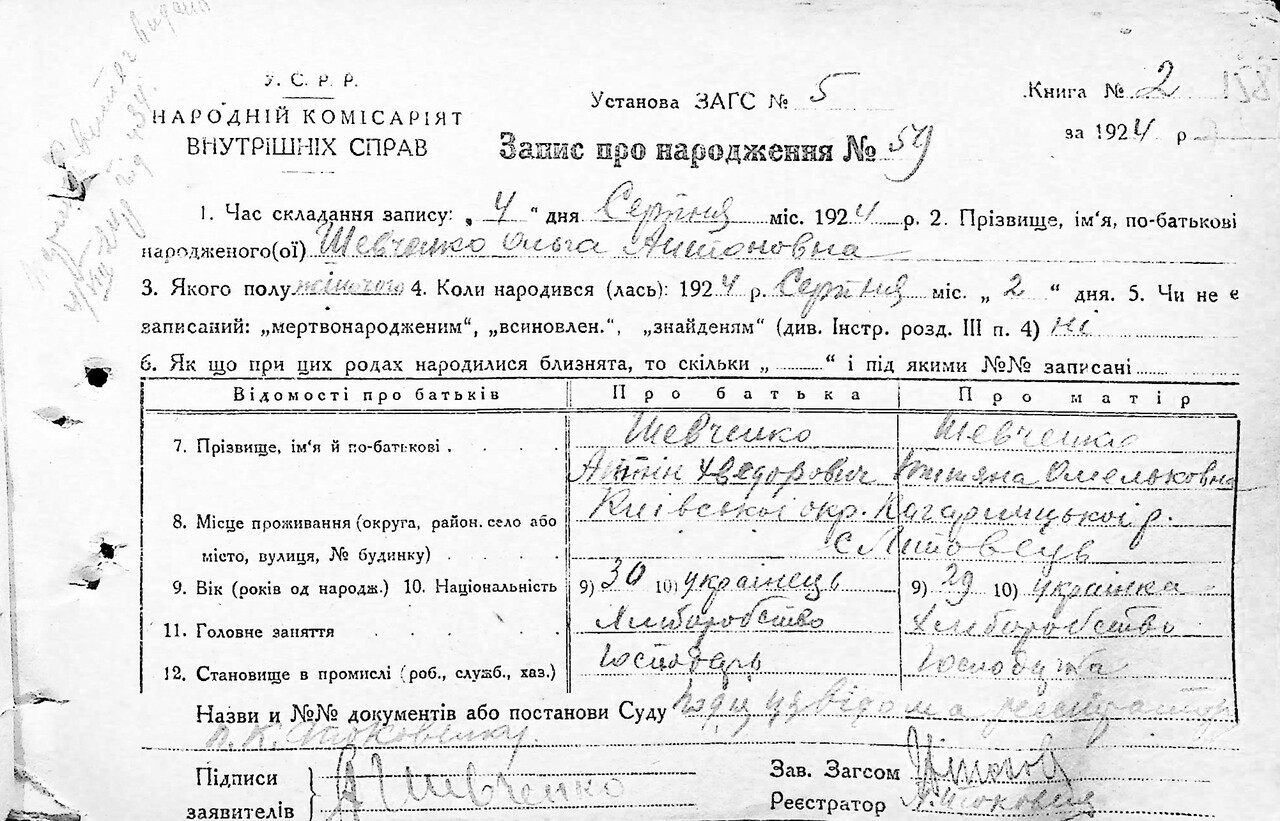 У. С. Р. Р.
НАРОДНІЙ КОМІСАРІЯТ
ВНУТРІШНІХ СПРАВ
Установа ЗАГС № 5
Книга № 2
за 1924 р
Запис про народження № 59
1. Час складання запису: „ 4 “ дня Серпня міс. 1924 р. 2. Прізвище, ім‘я, по-батькові
народженого(ої) Шевченко Ольга Антоновна
3. Якого полу жіночого 4. Коли народився (лась): 1924 р. Серпня міс. „ 2 “ дня. 5. Чи не є
записаний: „мертвонародженим“, „всиновлен.“, „знайденям“ (див. Інстр. розд. III п. 4) ні
6. Як що при цих родах народилися близнята, то скільки „ ......... “ і під якими №№ записані
Відомості про батьків Про батька Про матір
7. Прізвище, ім‘я й по-батькові . Шевченко Шевченко
Антін Хведорович Титяна Омельковна
8. Місце проживання (округа, район. село або Київської окр. Кагарлицької р.
місто, вулиця, № будинку) с Липовець
9. Вік (років од народж.) 10. Національність 9) 30 10) українець 9) 29 10) українка
11. Головне заняття Хліборобство Хліборобство
12. Становище в промислі (роб., служб., хаз.) Господарь
Назви и №№ документів або постанови Суду
Підписи
заявителів
А Шевченко
Зав. Загсом
Реєстратор